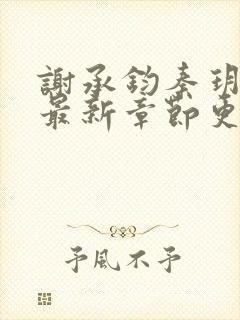 謝承鈞秦玥
最新章節更
予風不予